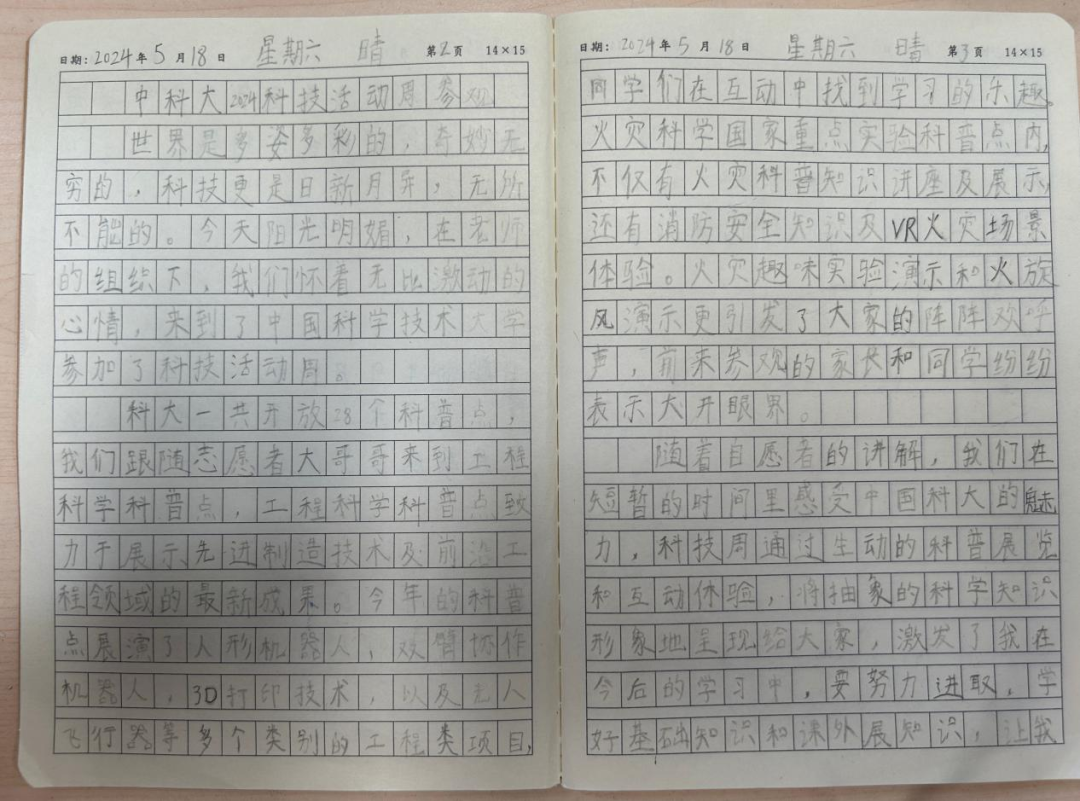 日期：2024年5月18日 星期六 晴 第2页 14×15
中科大2024科技活动周参观
世界是多姿多彩的，奇妙无
穷的，科技更是日新月异，无所
不能的。今天阳光明媚，在老师
的组织下，我们怀着无比激动的
心情，来到了中国科学技术大学
参加了科技活动周。
科大一共开放28个科普点，
我们跟随志愿者大哥哥来到工程
科学科普点，工程科学科普点致
力于展示先进制造技术及前沿工
程领域的最新成果。今年的科普
点展演了人形机器人，双臂协作
机器人，3D打印技术，以及无人
飞行器等多个类别的工程类项目，
日期：2024年5月18日 星期六 晴 第3页 14×15
同学们在互动中找到学习的乐趣。
火灾科学国家重点实验科普点内，
不仅有火灾科普知识讲座及展示，
还有消防安全知识及VR火灾场景
体验。火灾趣味实验演示和火旋
风演示更引发了大家的阵阵欢呼
声，前来参观的家长和同学纷纷
表示大开眼界。
随着自愿者的讲解，我们在
短暂的时间里感受中国科大的魅
力，科技周通过生动的科普展览
和互动体验，将抽象的科学知识
形象地呈现给大家，激发了我在
今后的学习中，要努力进取，学
好基础知识和课外展知识，让我